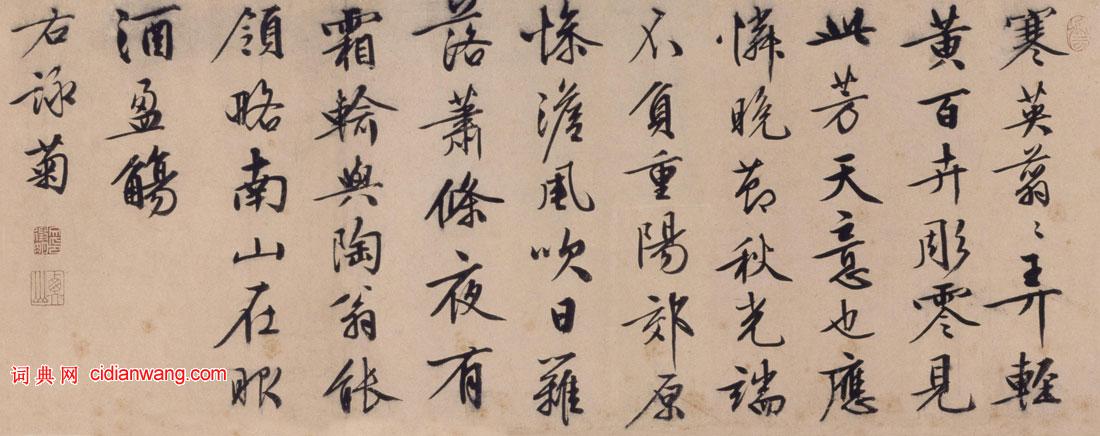 寒英翦〻弄輕
黃百卉彫零見
此芳天意也應
憐晚節秋光端
不負重陽郊原
慘澹風吹日籬
落蕭條夜有
霜輸與陶翁能
領略南山在眼
酒盈觴
右詠菊
词典网 cidianwang.com